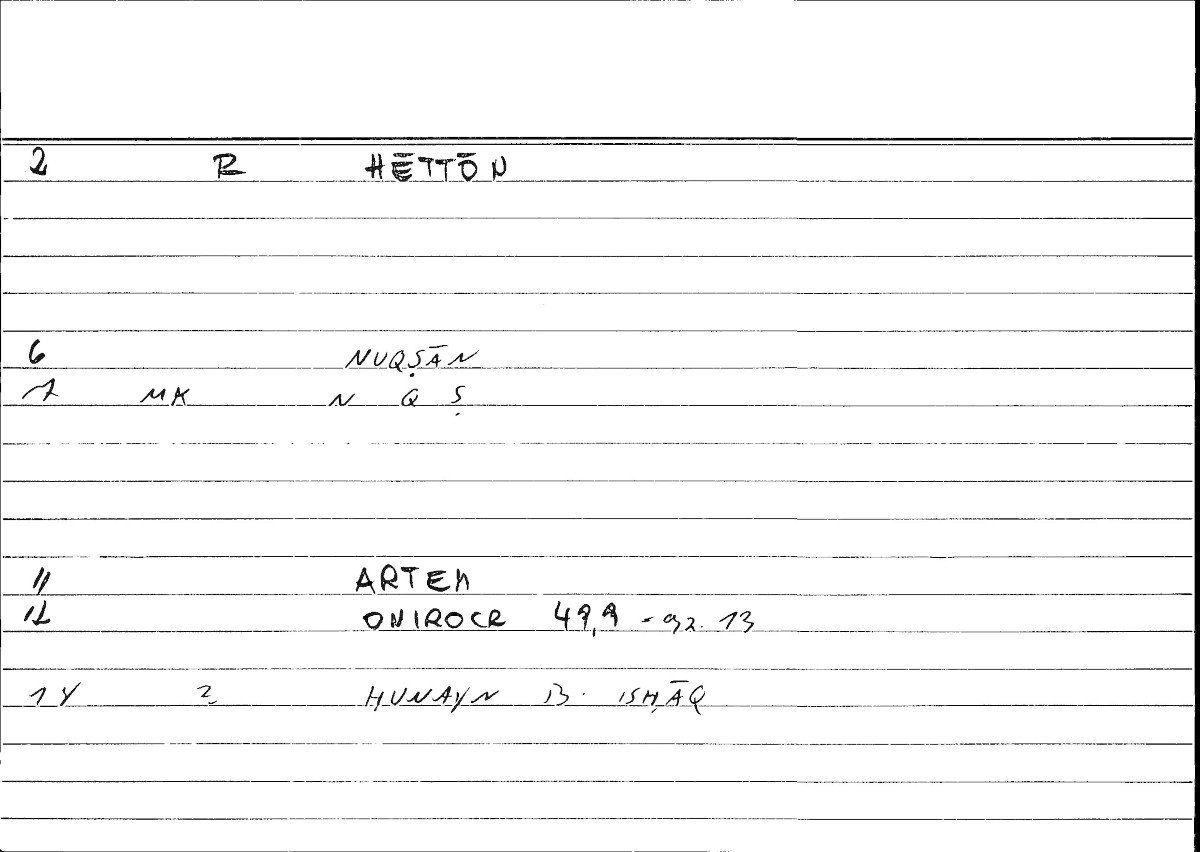 2 R HĒTTŌN
6 NUQṢĀN
7 MK N Q Ṣ
11 ARTEM
12 ONIROCR 49,9 = 92.13
14 2 HUNAYN B. ISḤĀQ